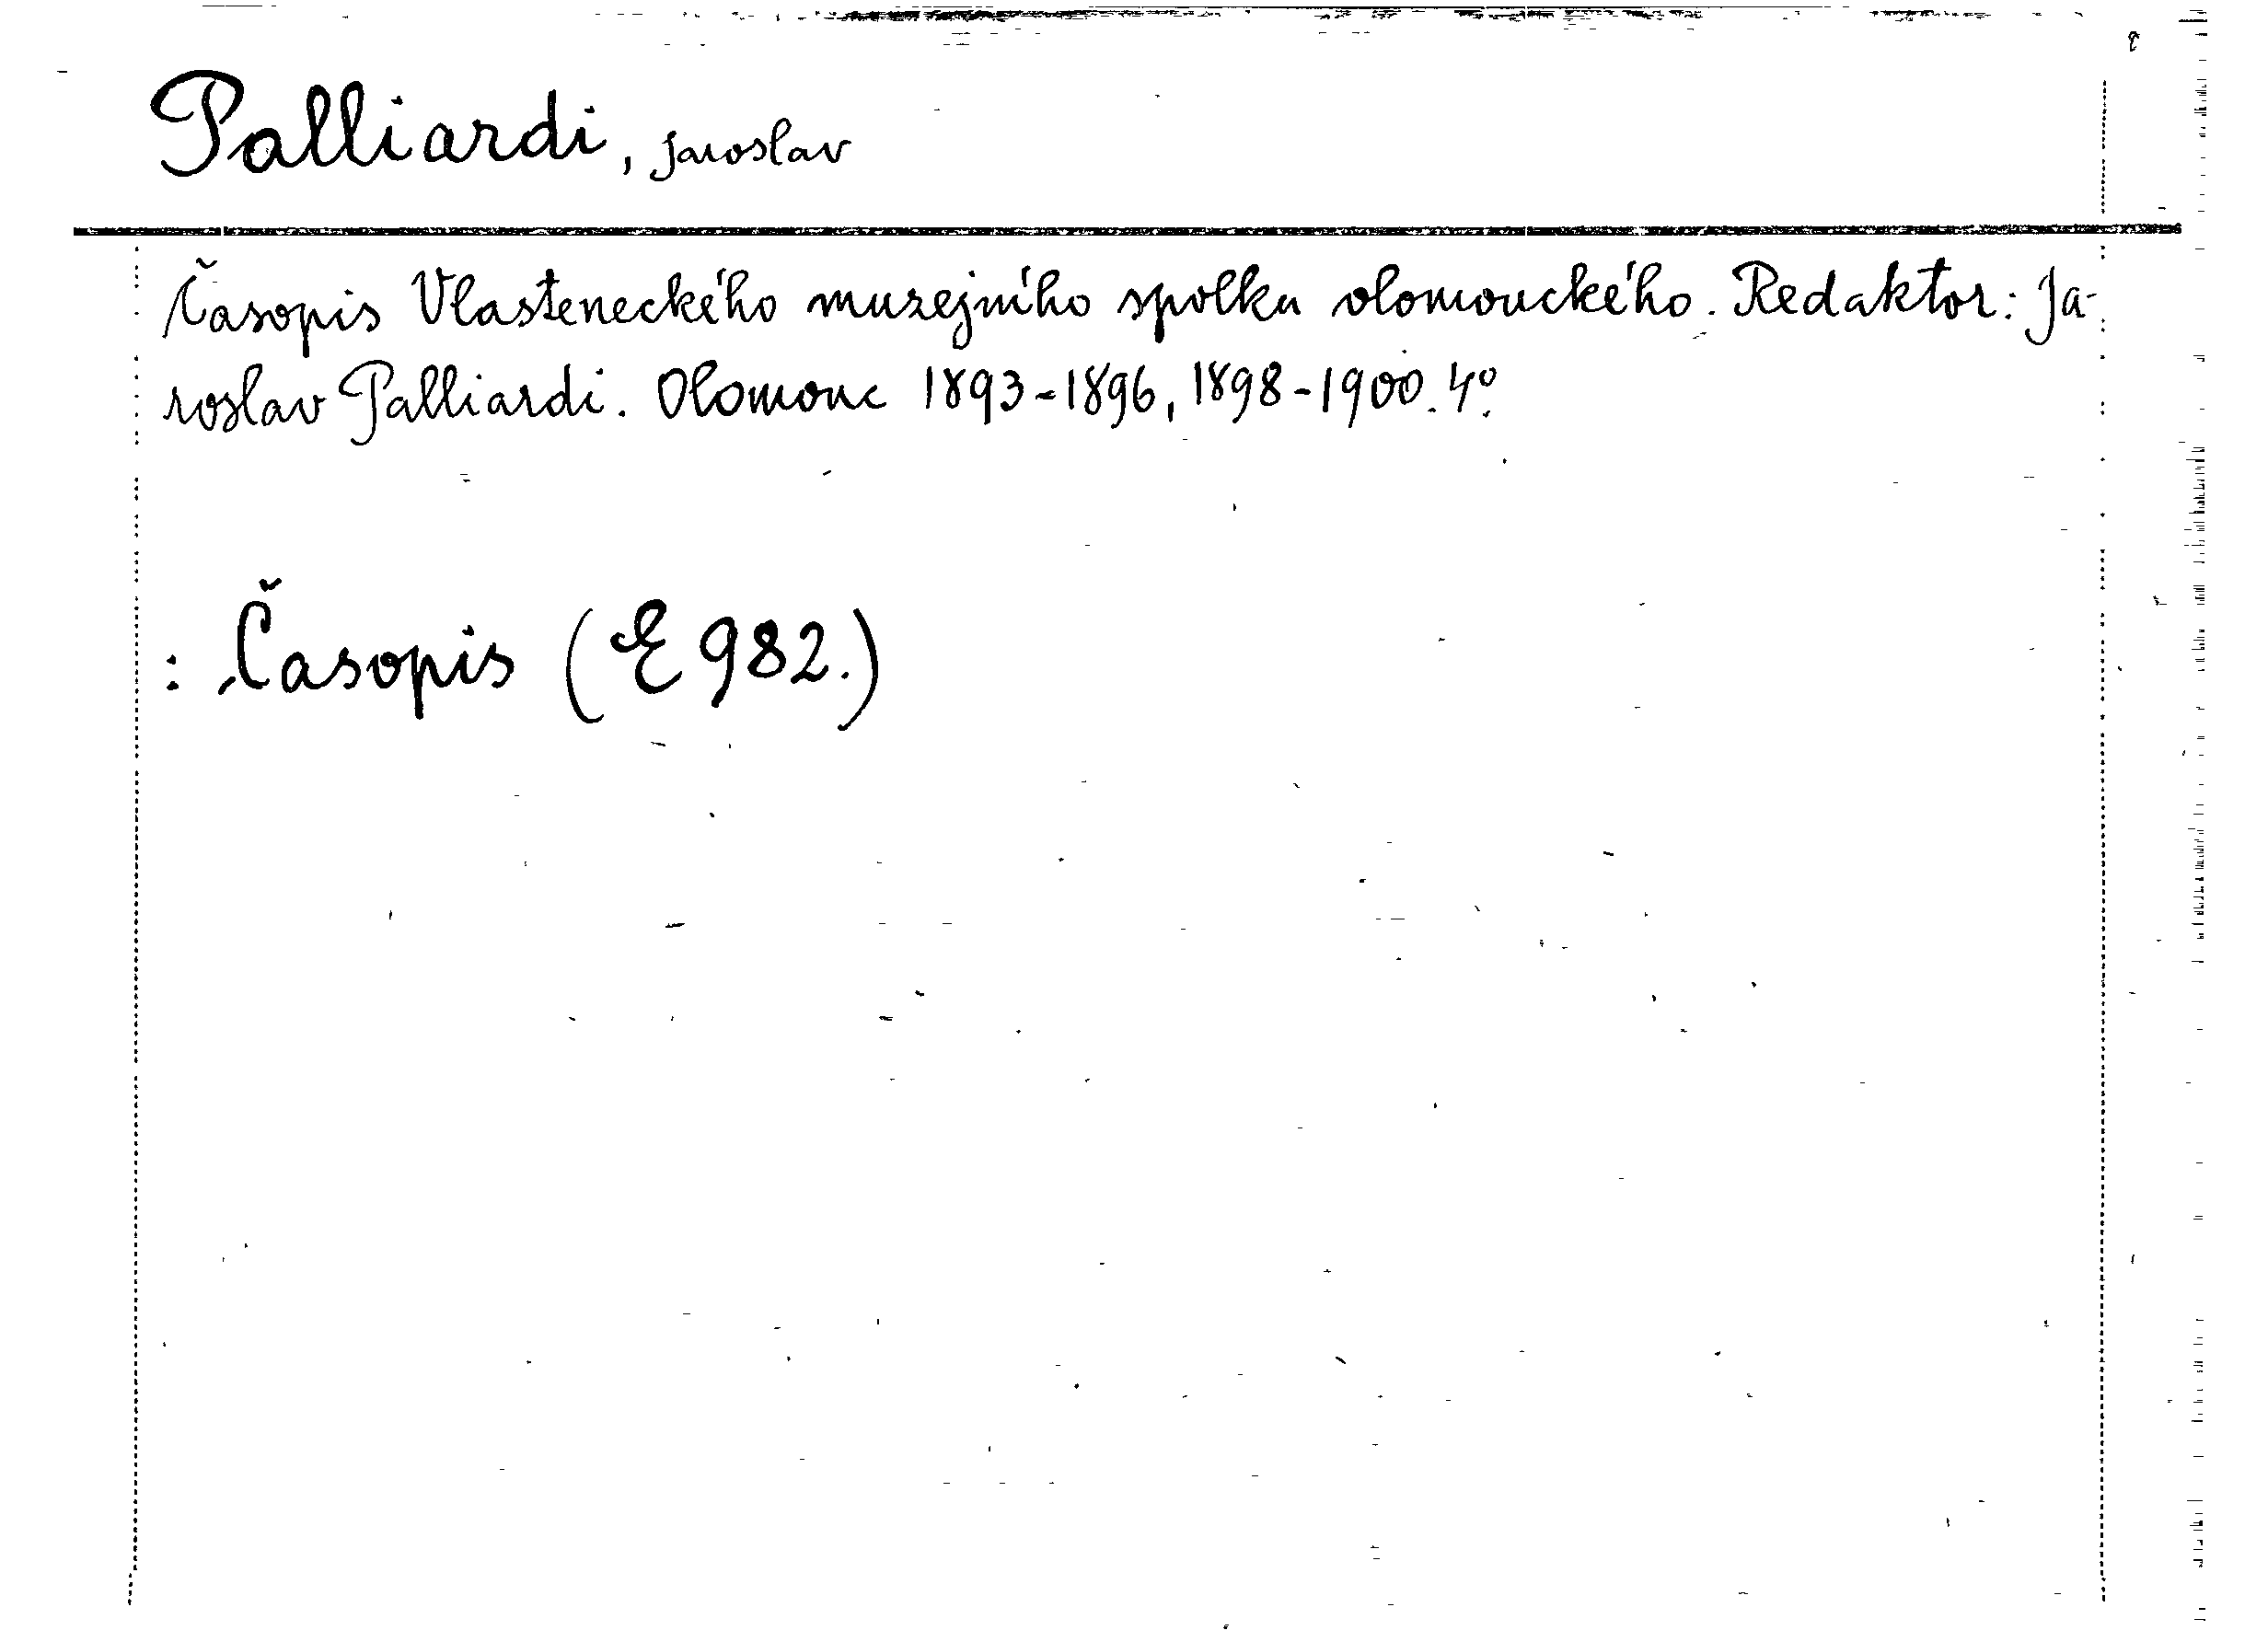 Palliardi, Jaroslav
Časopis Vlasteneckého musejního spolku olomouckého. Redaktor: Ja-
roslav Palliardi. Olomouc 1893-1896, 1898-1900. 4º.
: Časopis (E 982.)